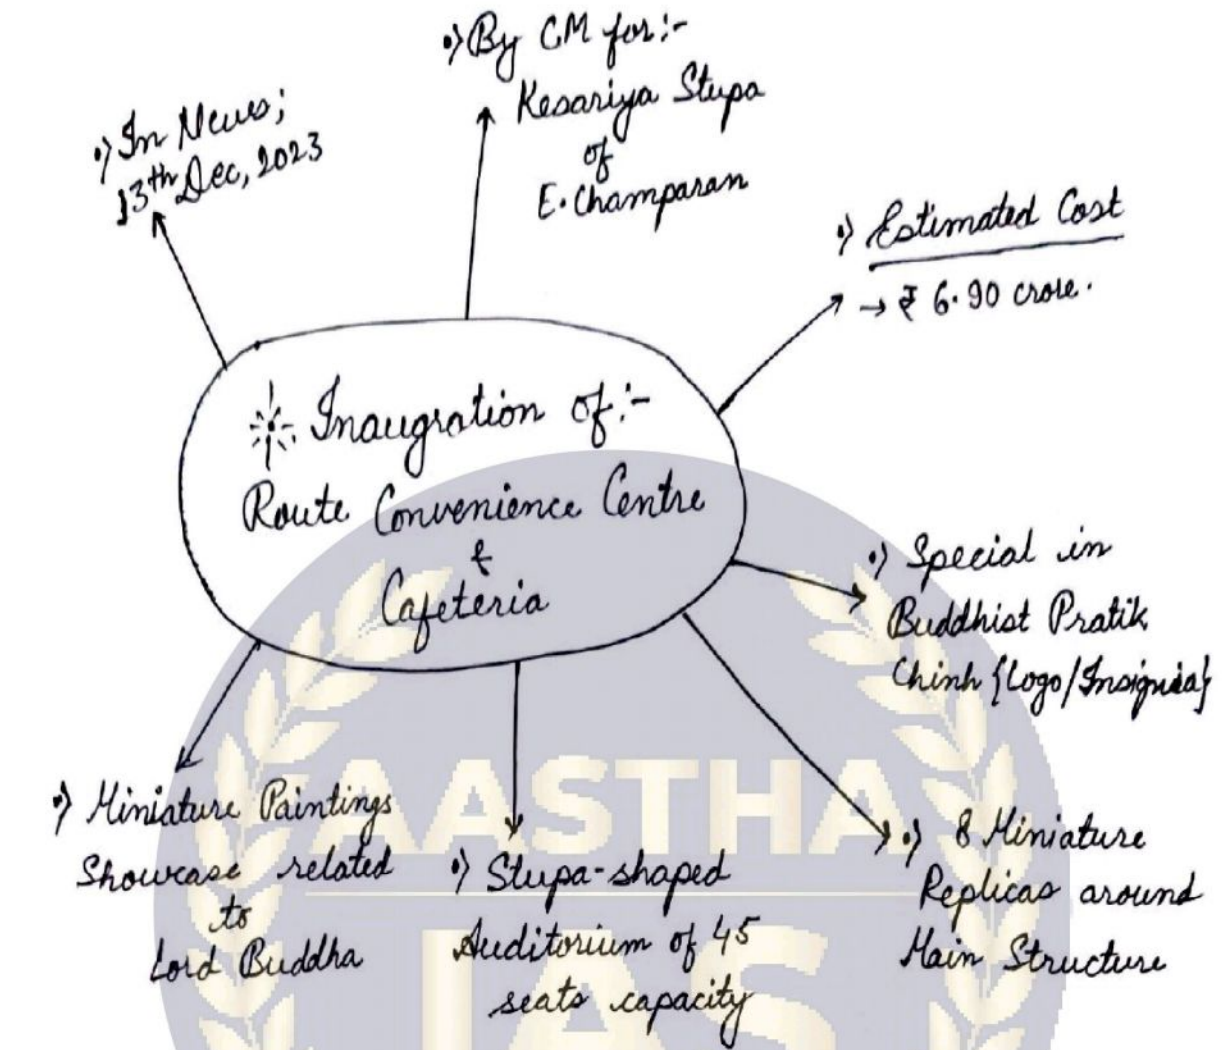 •) By CM for:-
Kesariya Stupa
of
E. Champaran
•) In News;
13th Dec, 2023
•) Estimated Cost
→ ₹ 6.90 crore.
Inaugration of:-
Route Convenience Centre
&
Cafeteria
•) Special in
Buddhist Pratik
Chinh {Logo/Insignia}
•) Miniature Paintings
Showcase related
to
Lord Buddha
•) Stupa-shaped
Auditorium of 45
seats capacity
•) 8 Miniature
Replicas around
Main Structure
AASTHA
IAS